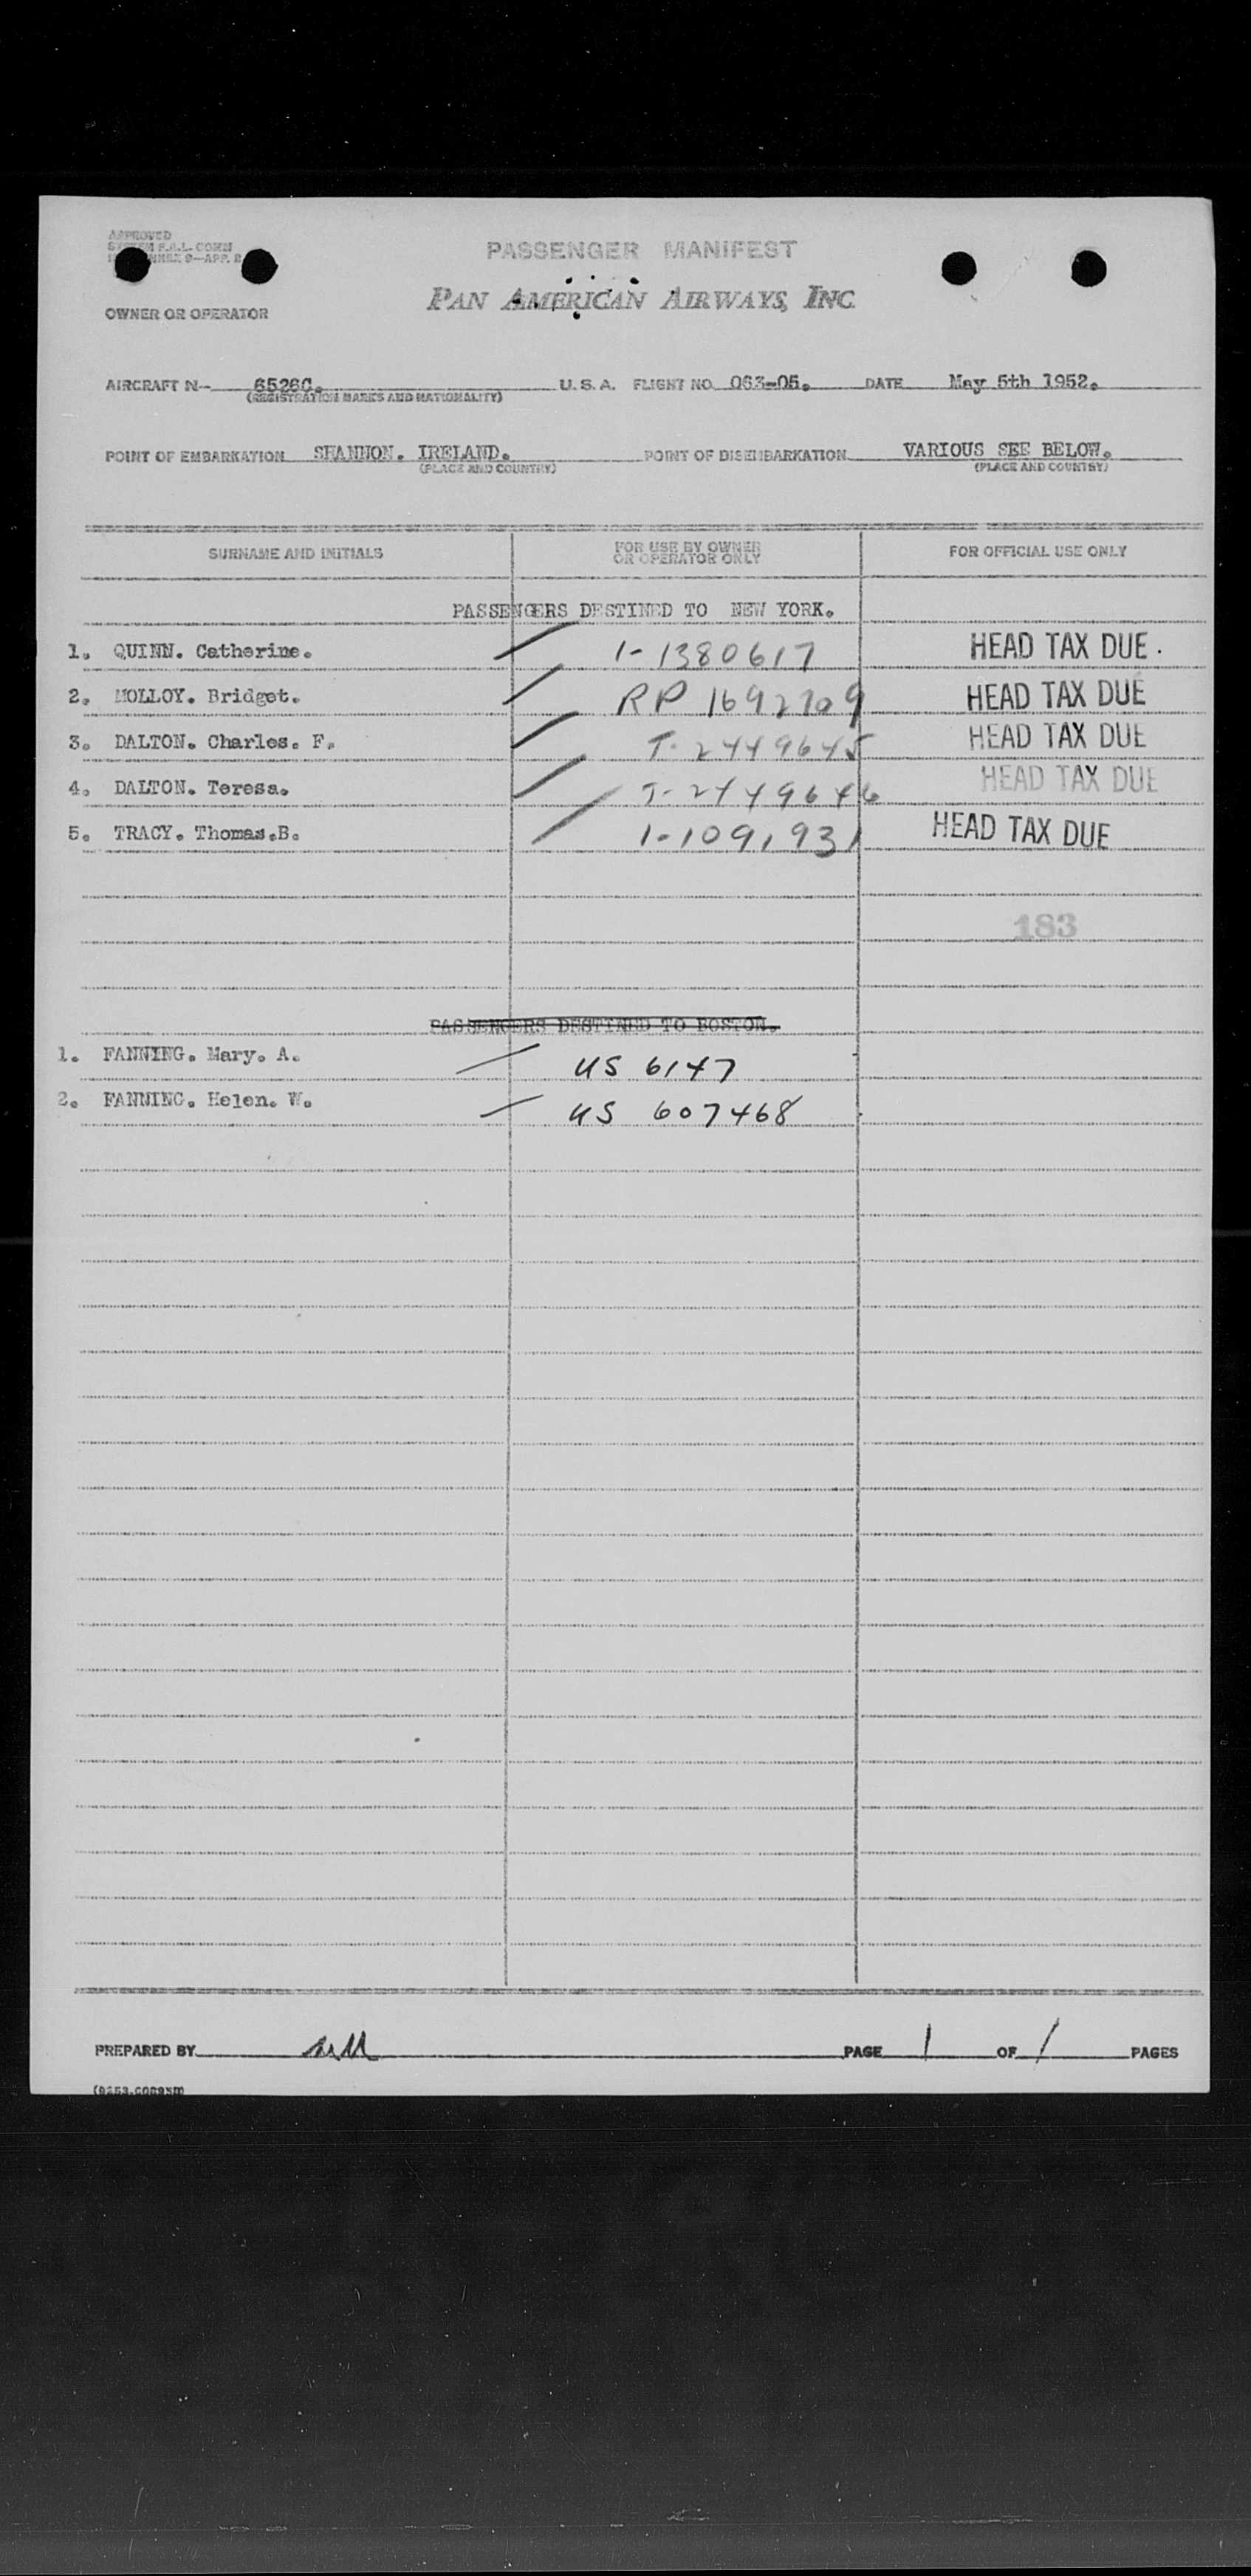 APPROVED
PASSENGER MANIFEST
PAN AMERICAN AIRWAYS, INC.
OWNER OR OPERATOR
AIRCRAFT N-- 6526C. U. S. A. FLIGHT NO. 063-05. DATE May 5th 1952.
(REGISTRATION MARKS AND NATIONALITY)
POINT OF EMBARKATION SHANNON. IRELAND. POINT OF DISEMBARKATION VARIOUS SEE BELOW.
(PLACE AND COUNTRY) (PLACE AND COUNTRY)
SURNAME AND INITIALS FOR USE BY OWNER OR OPERATOR ONLY FOR OFFICIAL USE ONLY
PASSENGERS DESTINED TO NEW YORK.
1. QUINN. Catherine. 1-1380617 HEAD TAX DUE.
2. MOLLOY. Bridget. RP 1692709 HEAD TAX DUE
3. DALTON. Charles. F. T-2449645 HEAD TAX DUE
4. DALTON. Teresa. T-2449646 HEAD TAX DUE
5. TRACY. Thomas.B. 1-1091931 HEAD TAX DUE
183
PASSENGERS DESTINED TO BOSTON.
1. FANNING. Mary. A. US 6147
2. FANNING. Helen. W. US 607468
PREPARED BY PAGE 1 OF 1 PAGES